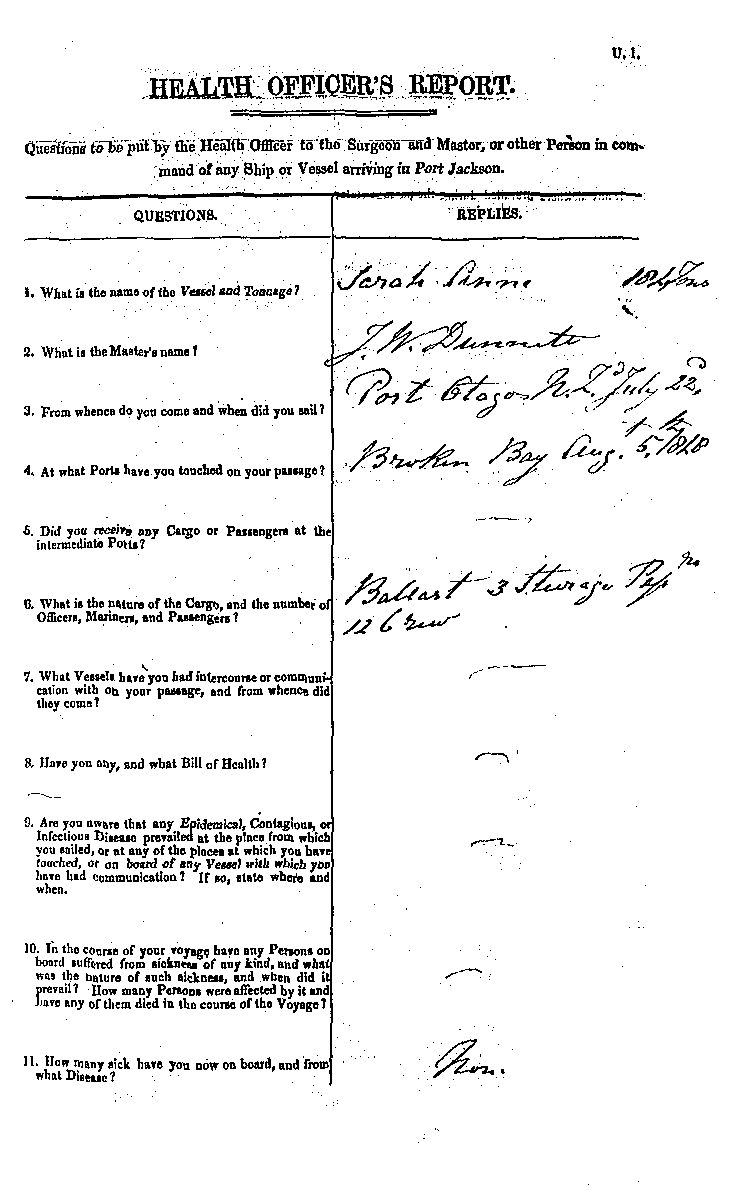 U. 1.
HEALTH OFFICER'S REPORT.
Questions to be put by the Health Officer to the Surgeon and Master, or other Person in com-
mand of any Ship or Vessel arriving in Port Jackson.
QUESTIONS.
REPLIES.
1. What is the name of the Vessel and Tonnage?
Sarah Anne 184 Tons
2. What is the Master's name?
J. W. Dunnett
3. From whence do you come and when did you sail?
Port Otago N.Zd July 22d
4. At what Ports have you touched on your passage?
Broken Bay Augt 5th 1848
5. Did you receive any Cargo or Passengers at the
intermediate Ports?
6. What is the nature of the Cargo, and the number of
Officers, Mariners, and Passengers?
Ballast 3 Sturage Pas
12 Crew
7. What Vessels have you had intercourse or communi-
cation with on your passage, and from whence did
they come?
8. Have you any, and what Bill of Health?
9. Are you aware that any Epidemical, Contagious, or
Infectious Disease prevailed at the place from which
you sailed, or at any of the places at which you have
touched, or on board of any Vessel with which you
have had communication? If so, state where and
when.
10. In the course of your voyage have any Persons on
board suffered from sickness of any kind, and what
was the nature of such sickness, and when did it
prevail? How many Persons were affected by it and
have any of them died in the course of the Voyage?
11. How many sick have you now on board, and from
what Disease?
Non.